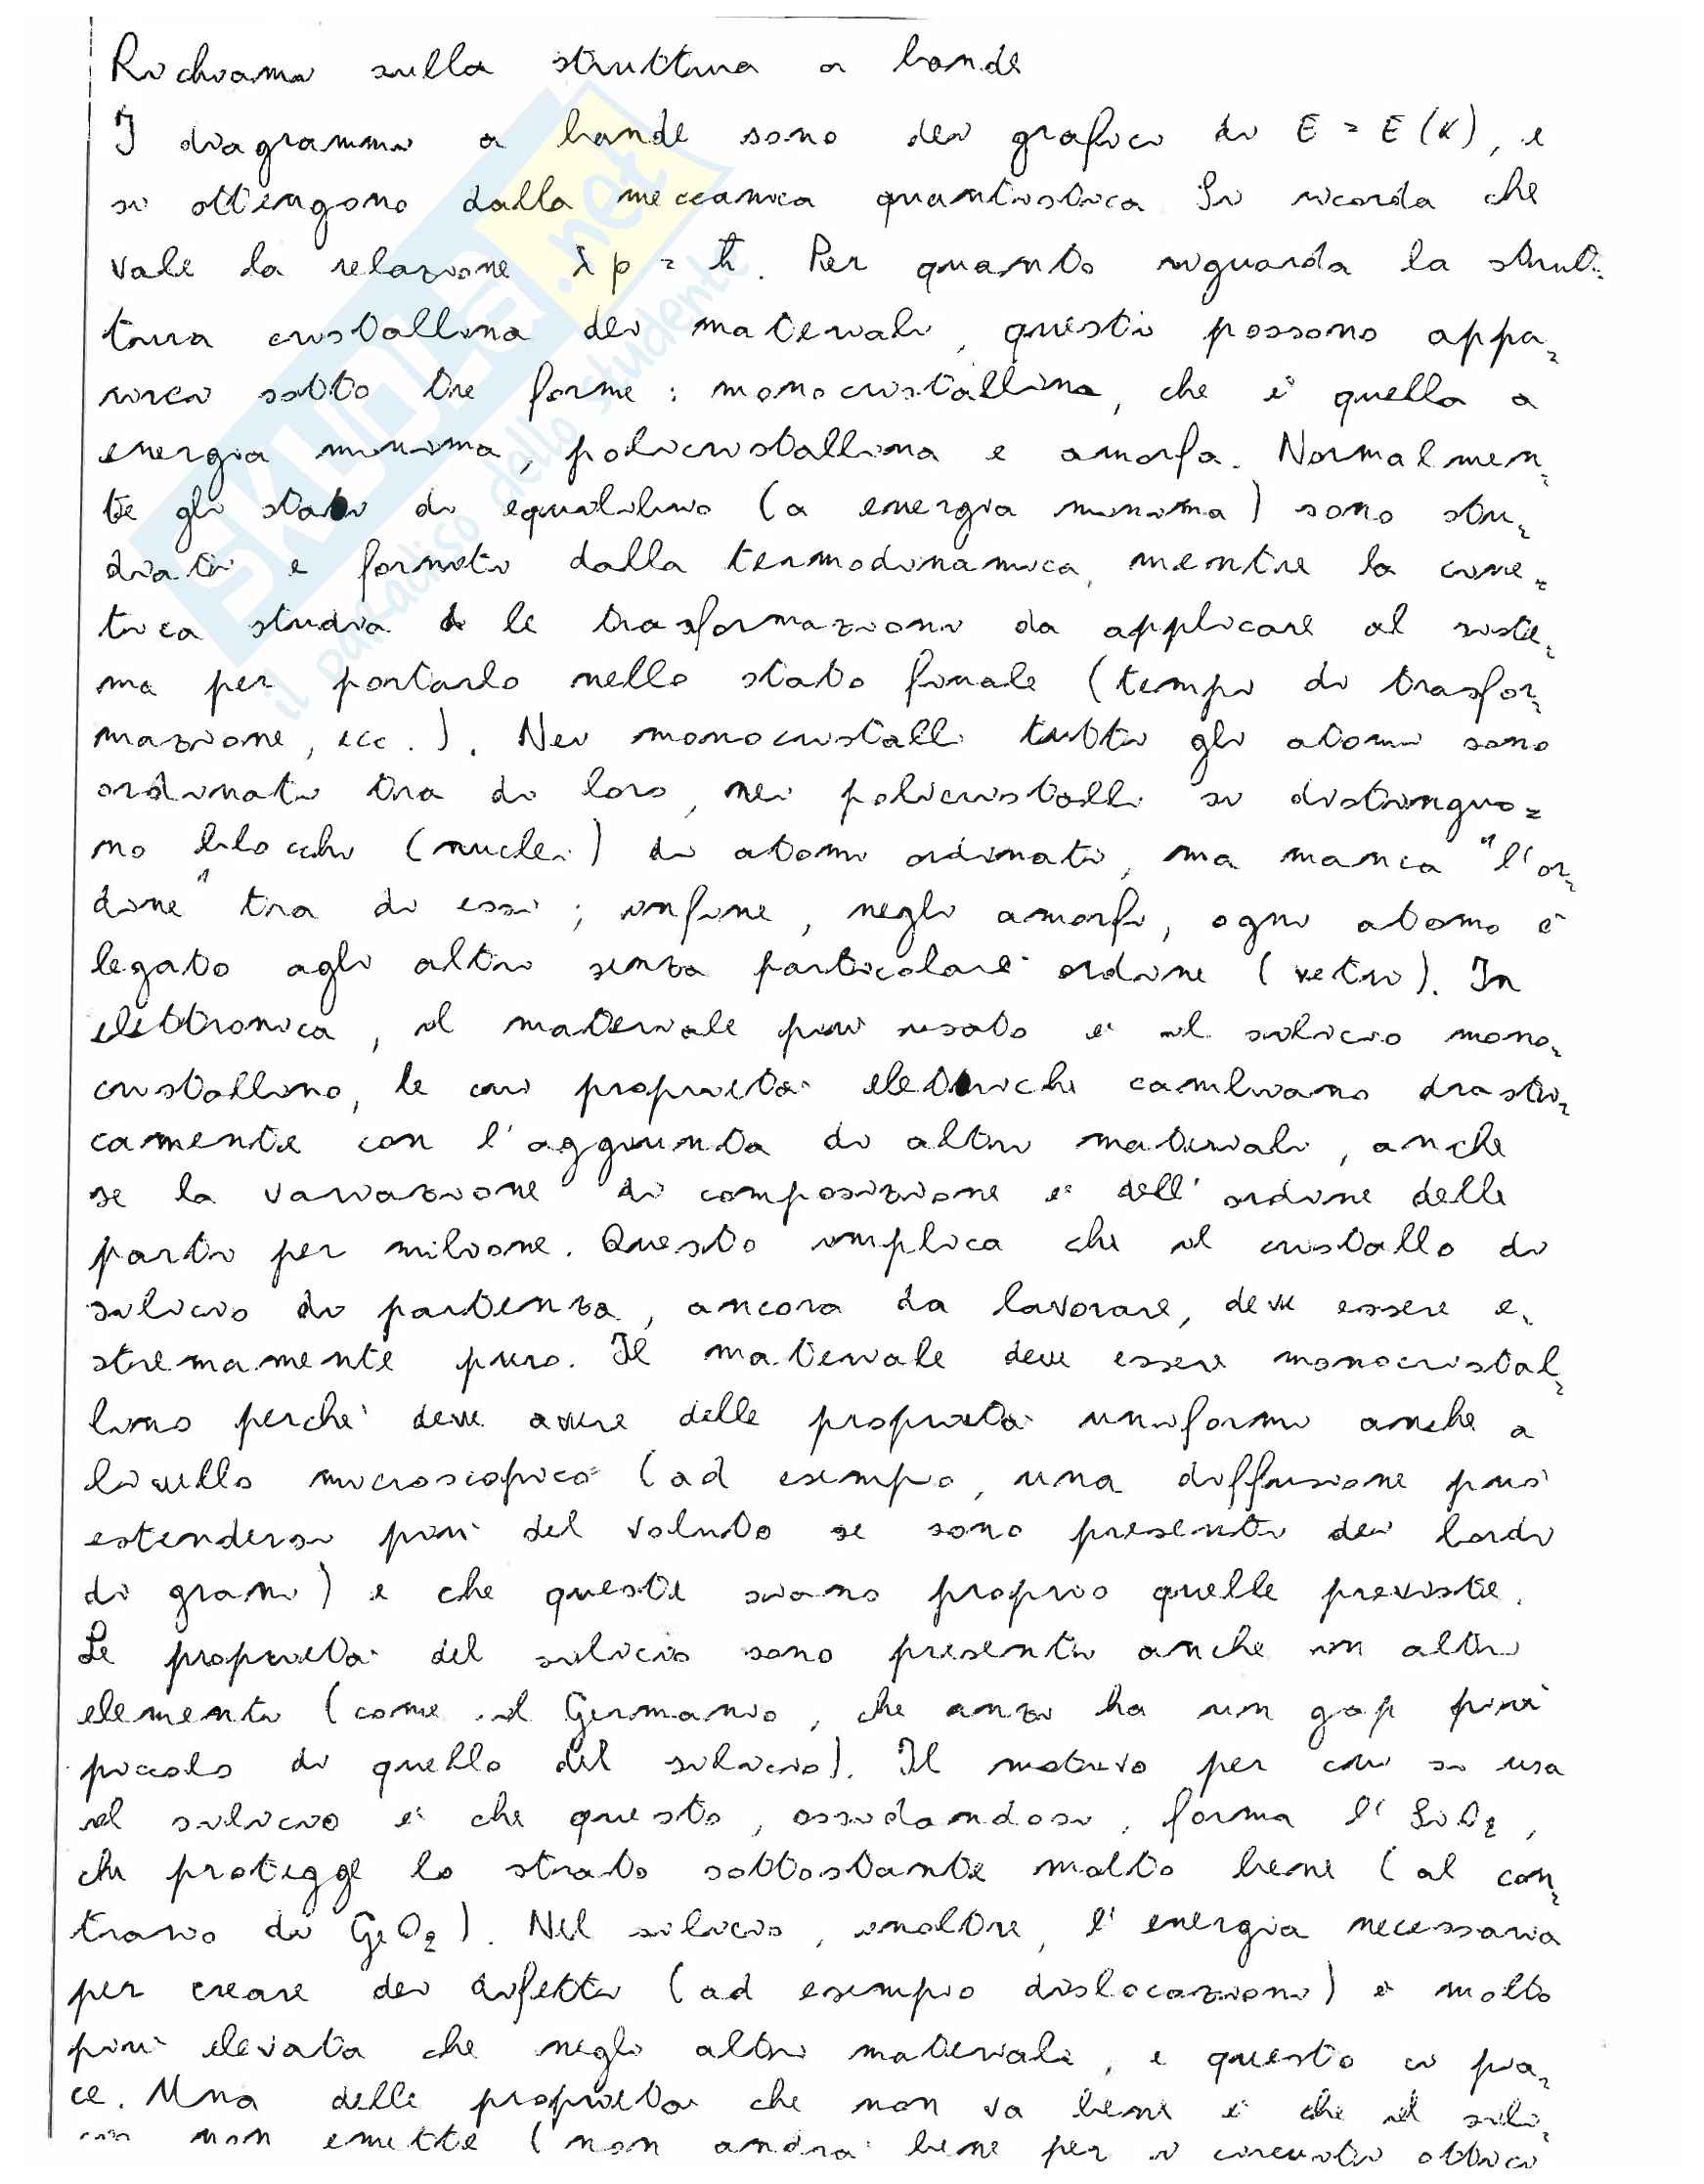 Richiami sulla struttura a bande
I diagrammi a bande sono dei grafici di E = E(K), e
si ottengono dalla meccanica quantistica Si ricorda che
vale la relazione λp = ħ. Per quanto riguarda la strut=
tura cristallina dei materiali, questi possono appa=
rirci sotto tre forme : monocristallina, che è quella a
energia minima, policristallina e amorfa. Normalmen=
te gli stati di equilibrio (a energia minima) sono stu=
diati e forniti dalla termodinamica, mentre la cine=
tica studia le trasformazioni da applicare al siste=
ma per portarlo nello stato finale (tempi di trasfor=
mazione, ecc.). Nei monocristalli tutti gli atomi sono
ordinati tra di loro, nei policristalli si distinguo=
no blocchi (nuclei) di atomi ordinati, ma manca "l'or=
dine" tra di essi ; infine, negli amorfi, ogni atomo è
legato agli altri senza particolare ordine (vetri). In
elettronica, il materiale più usato è il silicio mono=
cristallino, le cui proprietà elettriche cambiano drasti=
camente con l'aggiunta di altri materiali, anche
se la variazione di composizione è dell'ordine delle
parti per milione. Questo implica che il cristallo di
silicio di partenza, ancora da lavorare, deve essere e=
stremamente puro. Il materiale deve essere monocristal=
lino perchè deve avere delle proprietà uniformi anche a
livello microscopico (ad esempio, una diffusione può
estendersi più del voluto se sono presenti dei bordi
di grani) e che queste siano proprio quelle previste.
Le proprietà del silicio sono presenti anche in altri
elementi (come il Germanio, che anzi ha un gap più
piccolo di quello del silicio). Il motivo per cui si usa
il silicio è che questo, ossidandosi, forma l'SiO₂,
che protegge lo strato sottostante molto bene (al con=
trario di GeO₂). Nel silicio, inoltre, l'energia necessaria
per creare dei difetti (ad esempio dislocazioni) è molto
più elevata che negli altri materiali, e questo ci pia=
ce. Una delle proprietà che non va bene è che il sili=
cio non emette (non andrà bene per i circuiti ottici
SKUOLA.net
il paradiso dello studente